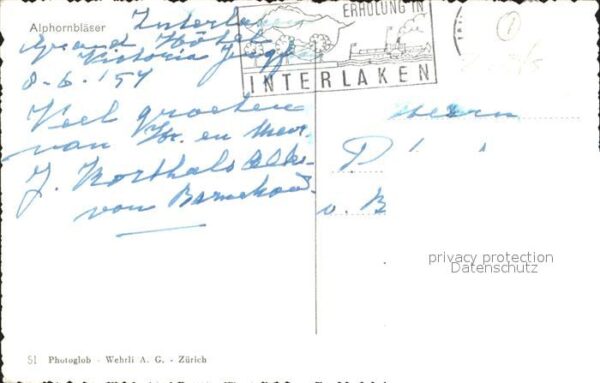 Alphornbläser
Interlaken
Grand Hôtel
Victoria Jungf
8-6-'54
Veel groeten
van Hr. en Mevr.
J. Korthals
van
ERHOLUNG IN
INTERLAKEN
1
Heern
D
v. B
privacy protection
Datenschutz
51 Photoglob - Wehrli A. G. - Zürich